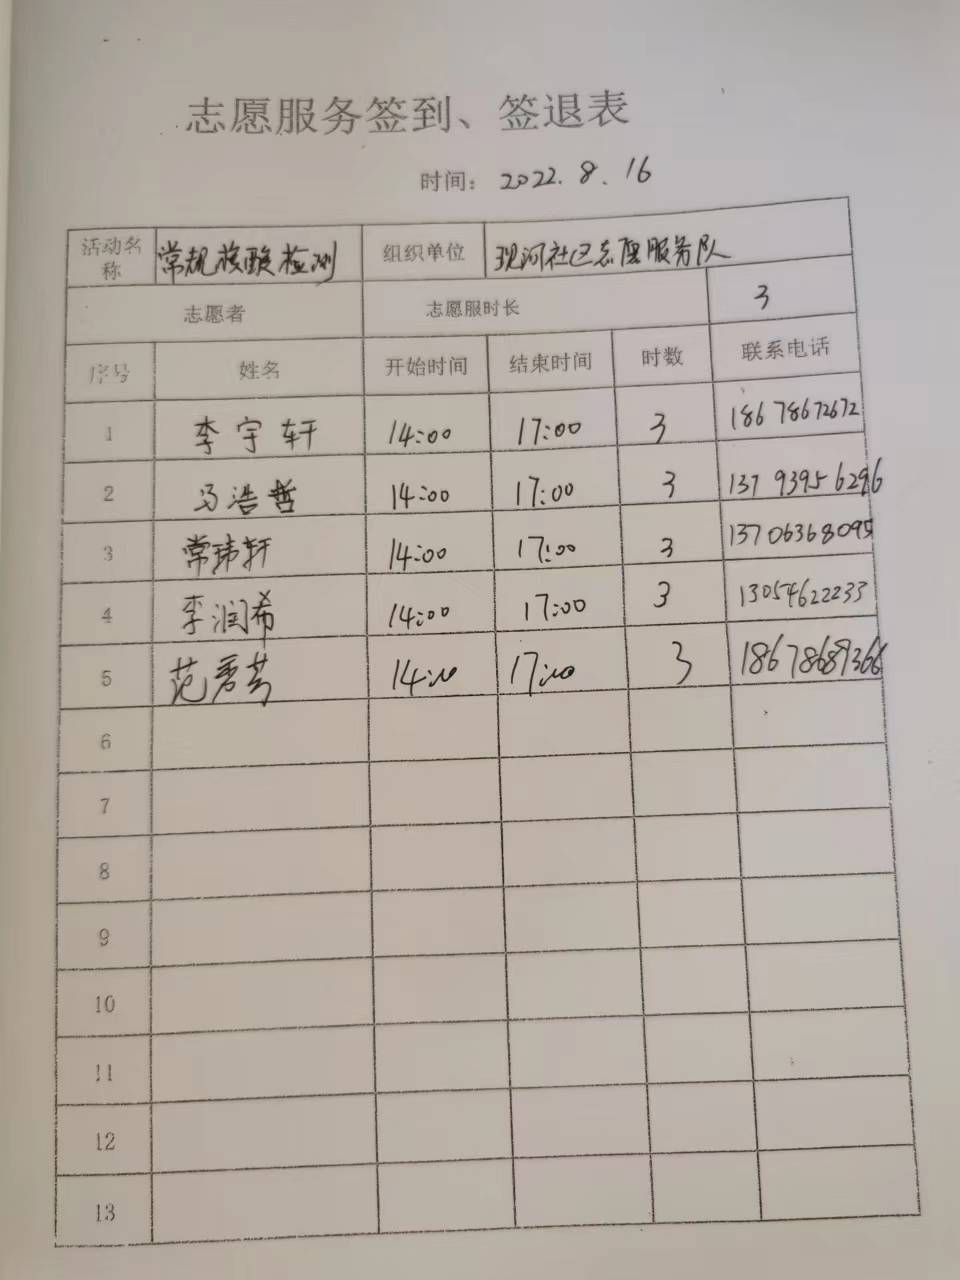 志愿服务签到、签退表
时间：2022.8.16
活动名称 常规核酸检测 组织单位 现河社区志愿服务队
志愿者 志愿服时长 3
序号 姓名 开始时间 结束时间 时数 联系电话
1 李宇轩 14:00 17:00 3 18678672672
2 马浩哲 14:00 17:00 3 13793956296
3 常玮轩 14:00 17:00 3 13706368095
4 李润希 14:00 17:00 3 13054622233
5 范 14:00 17:00 3 18678689366
6
7
8
9
10
11
12
13